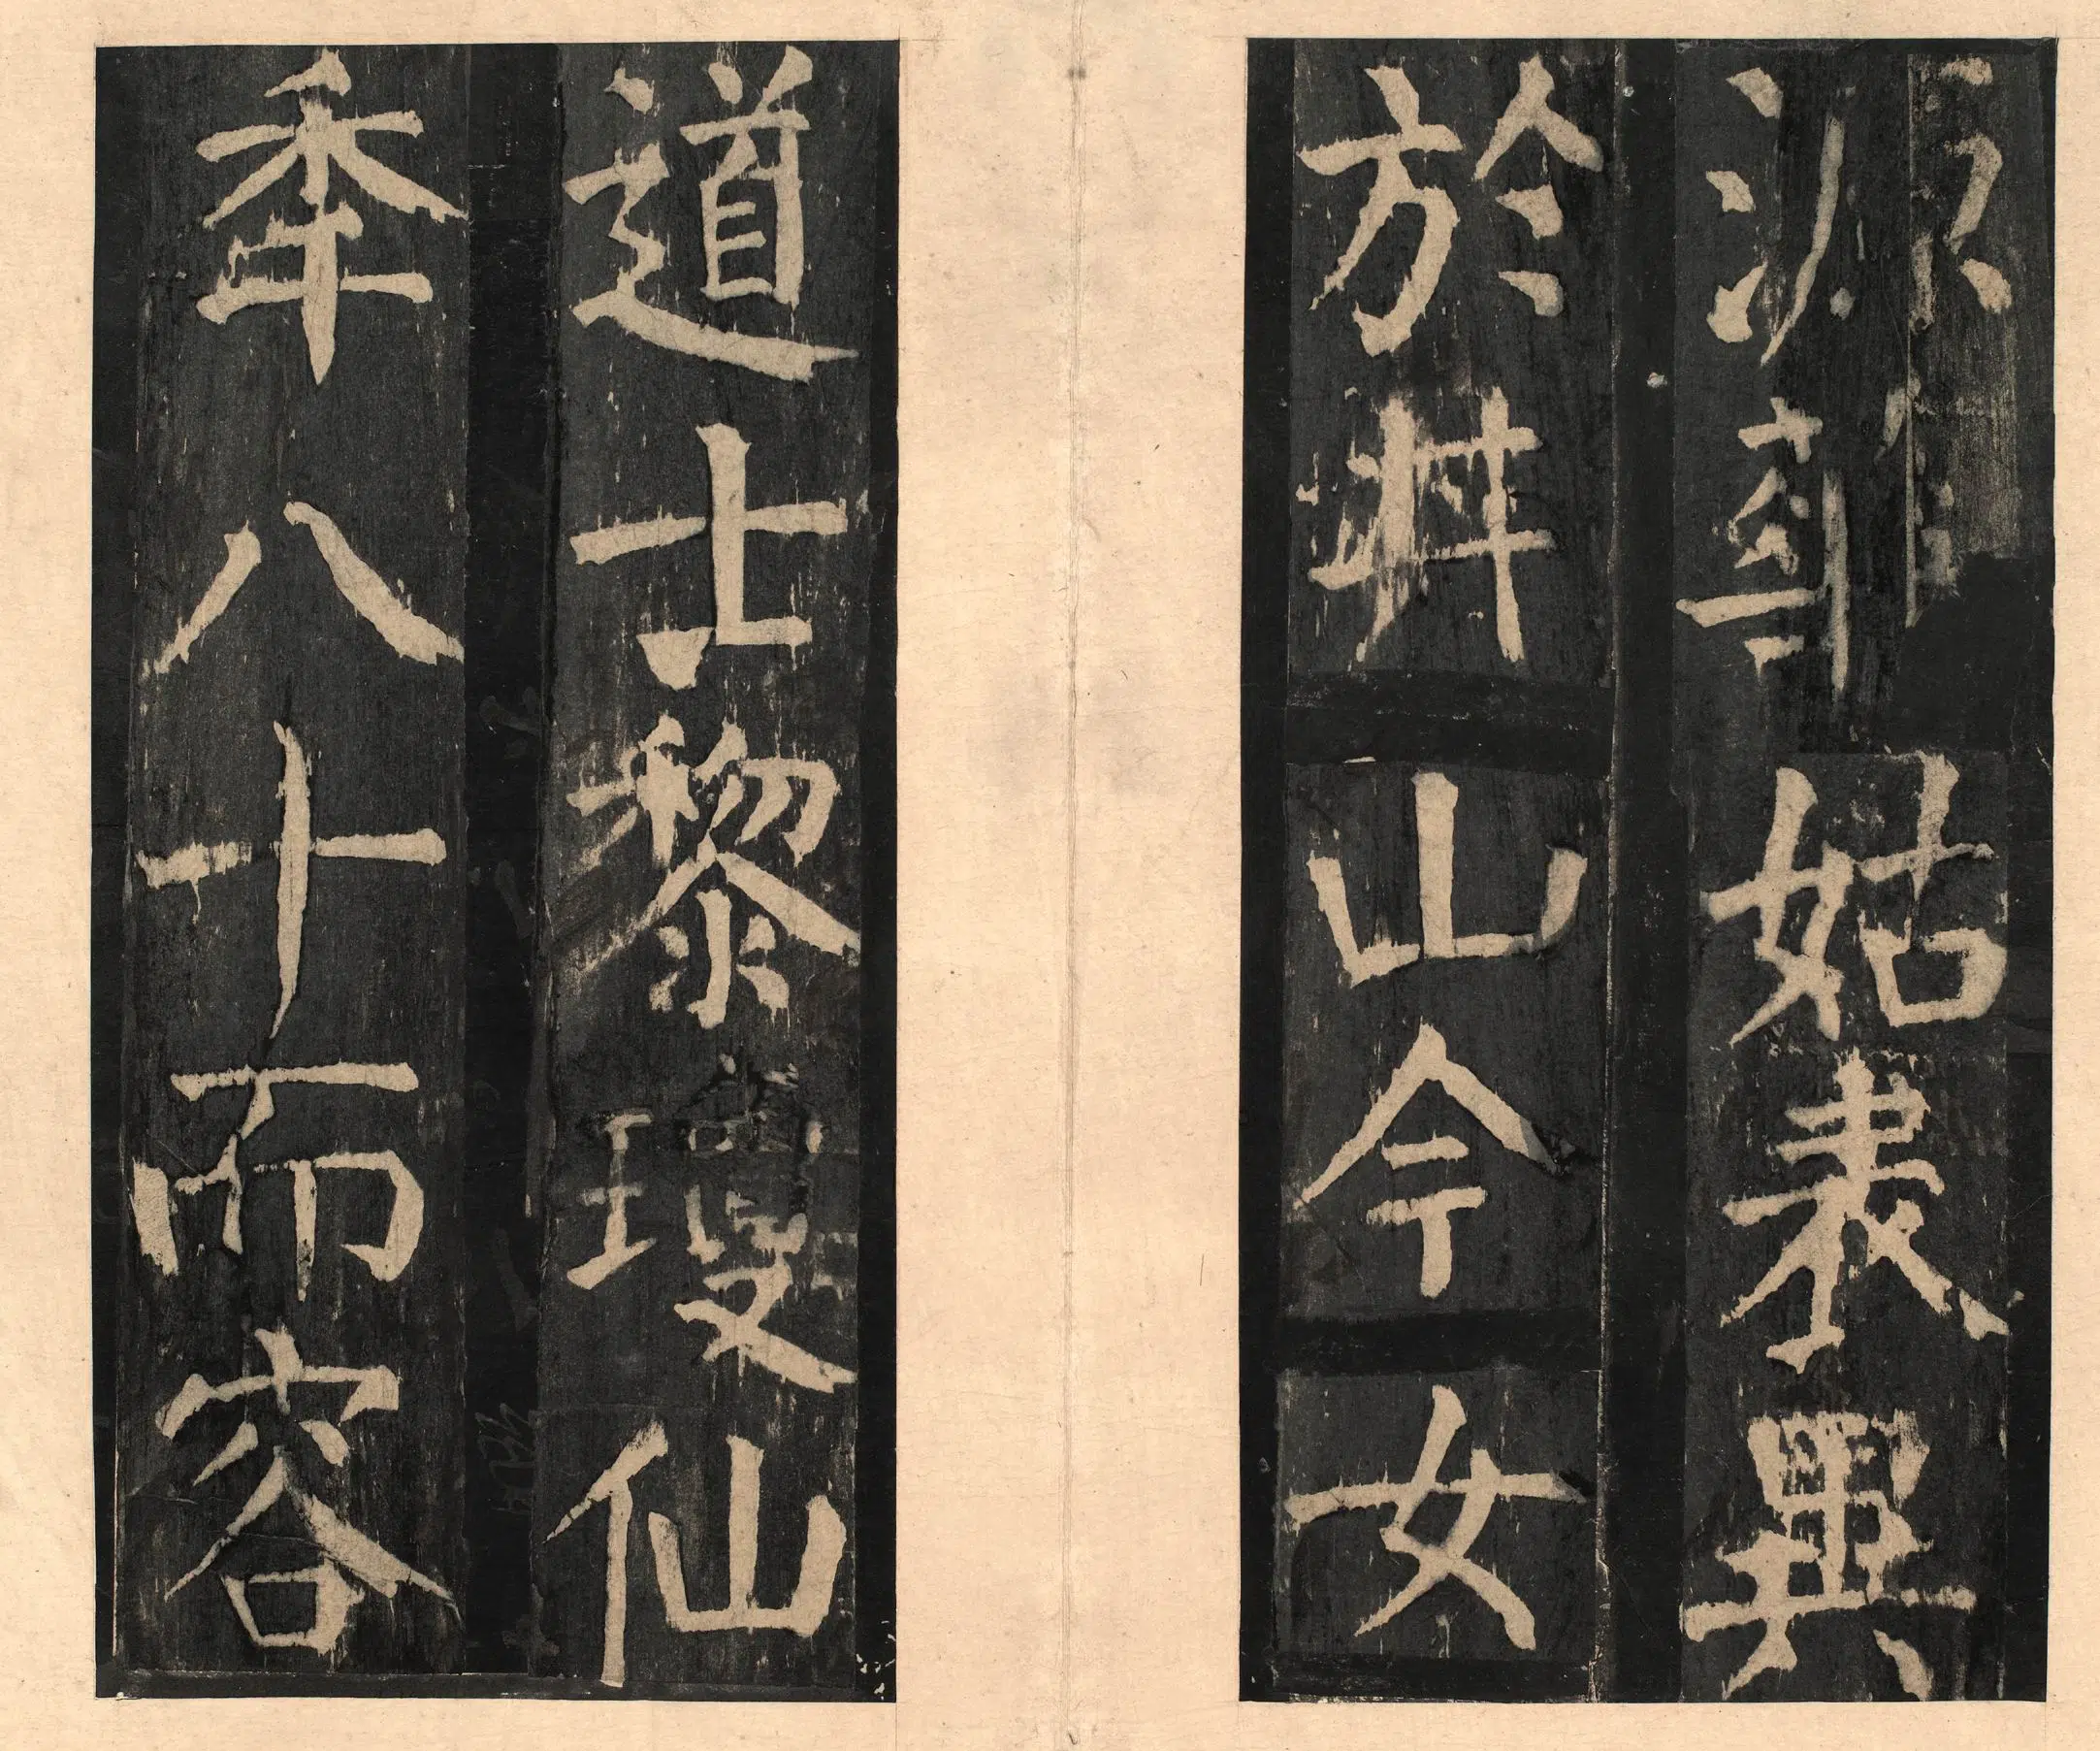 源華姑表異
於井山今女
道士黎瓊仙
秊八十而容